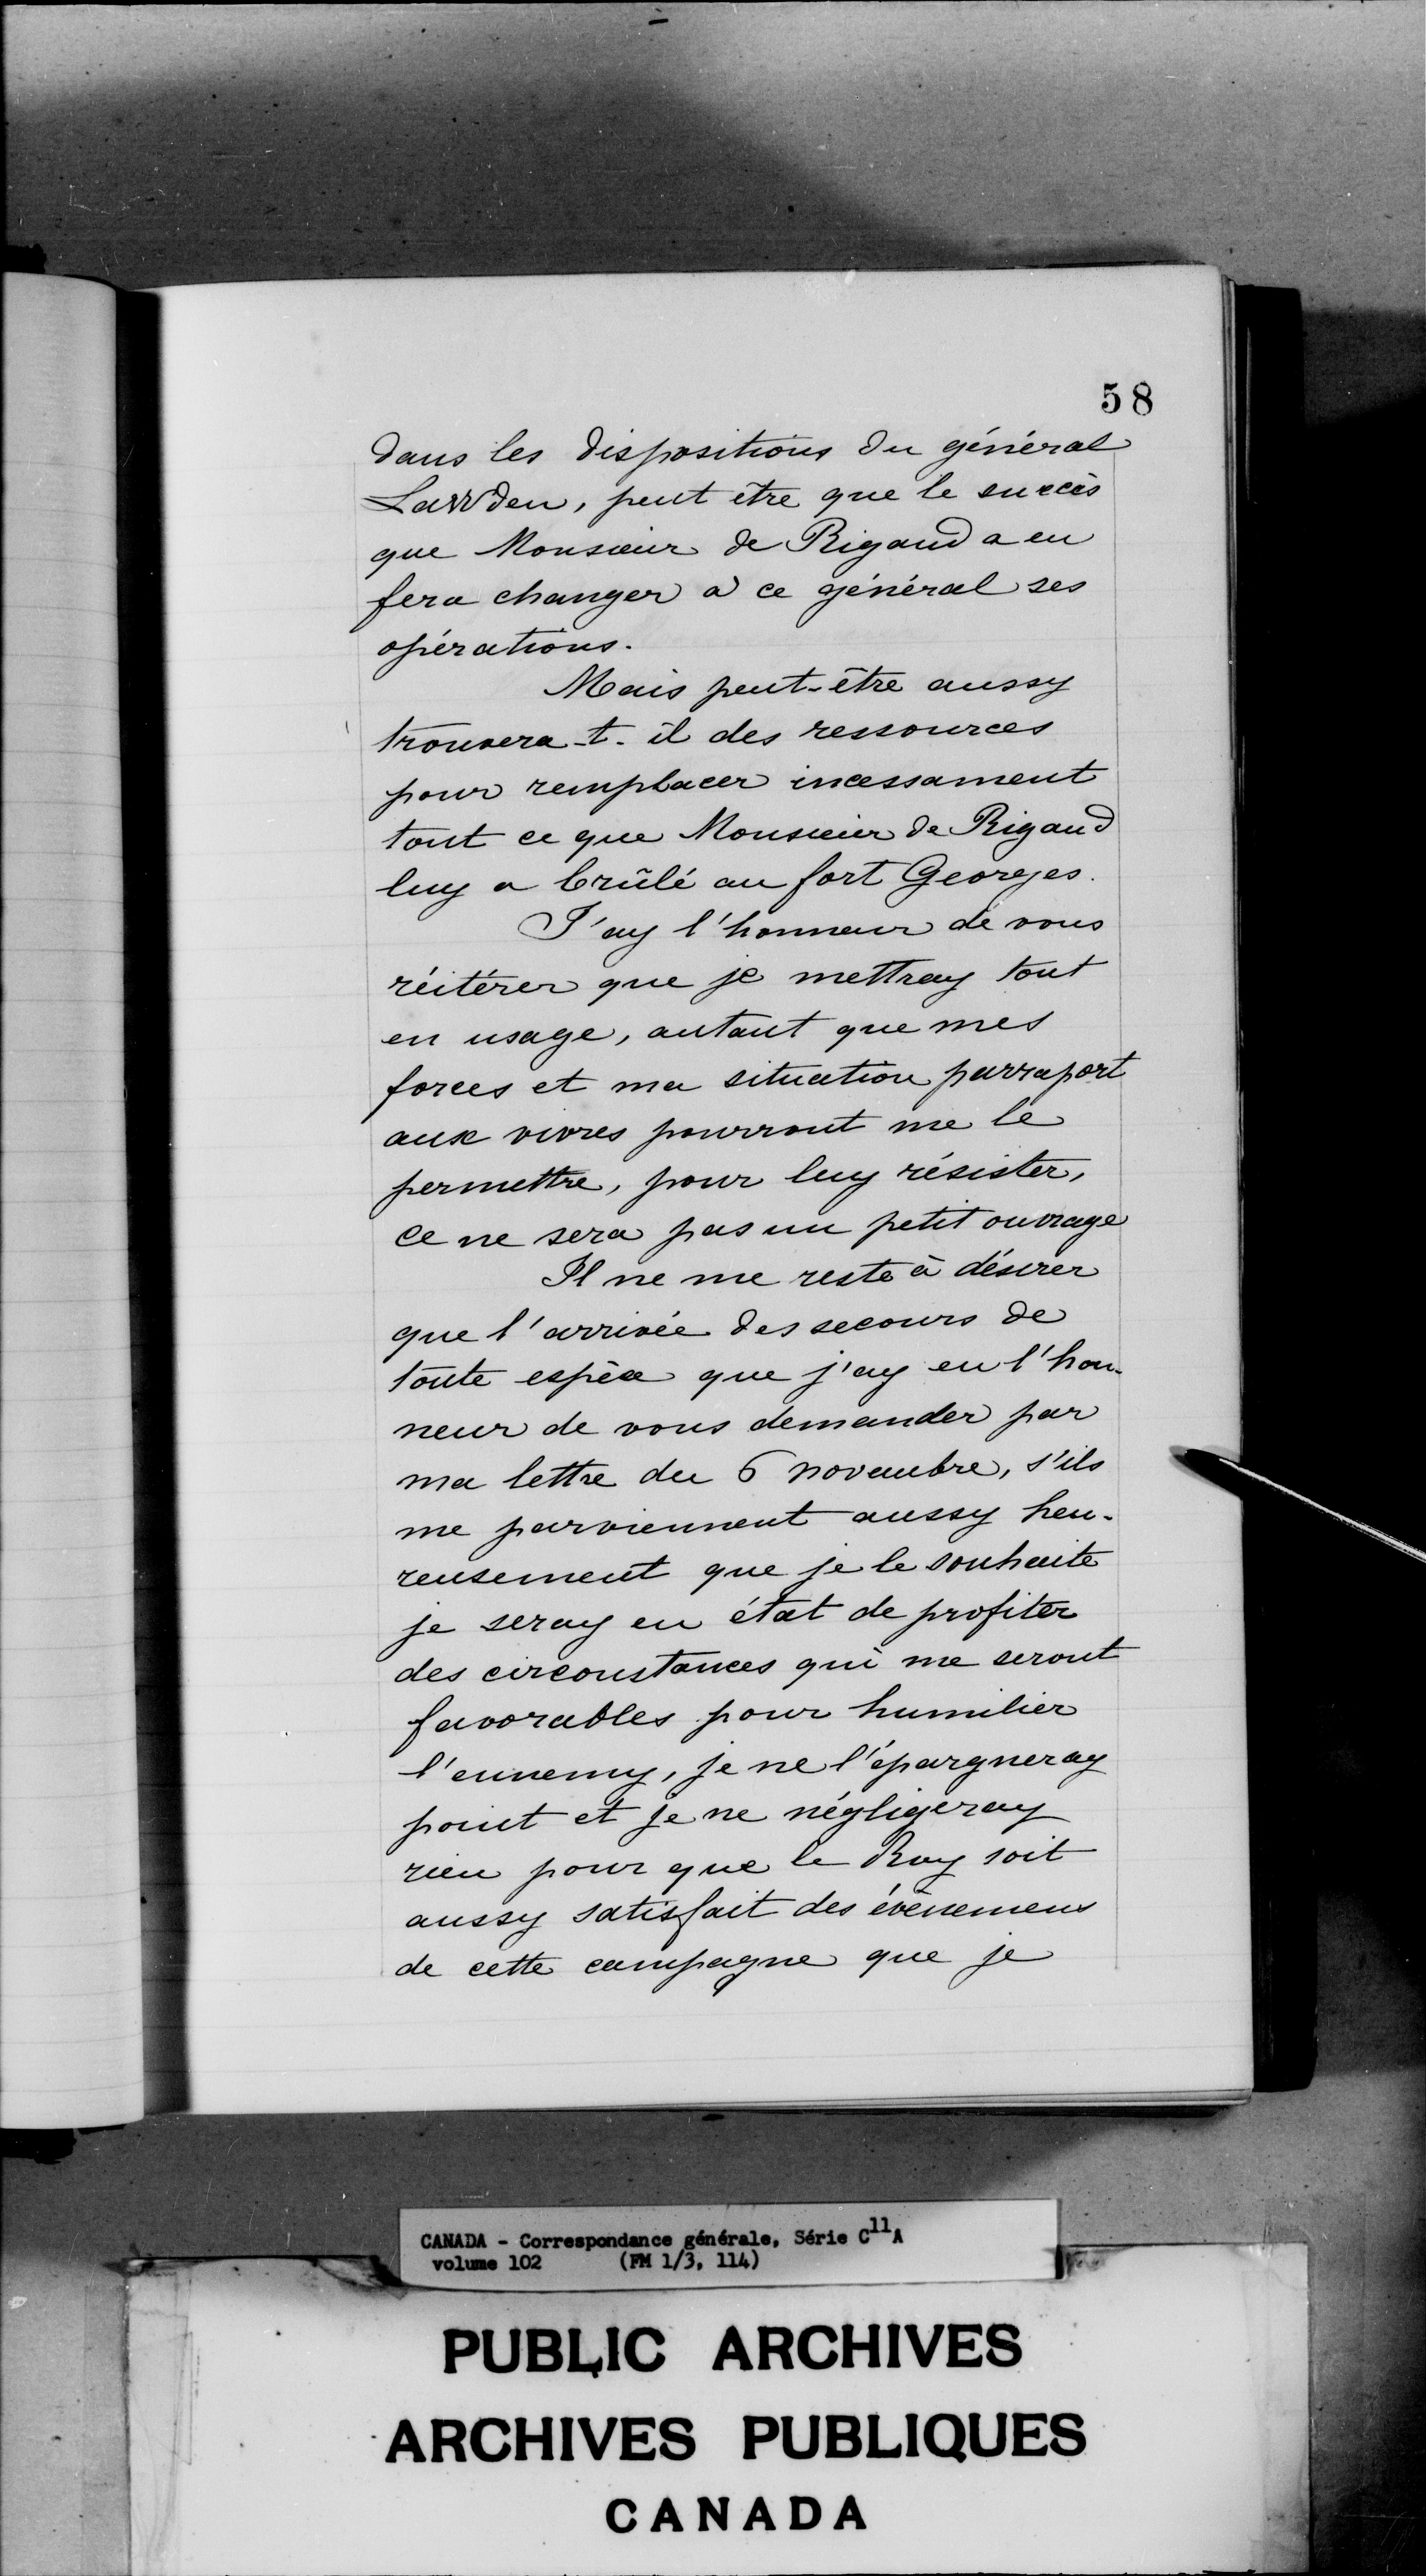 58
dans les dispositions du général
Lawden, peut être que le succès
que Monsieur de Rigaud a eu
fera changer à ce général ses
opérations.
Mais peut-être aussy
trouvera-t-il des ressources
pour remplacer incessament
tout ce que Monsieur de Rigaud
luy a brûlé au fort Georges.
J'ay l'honneur de vous
réitérer que je mettray tout
en usage, autant que mes
forces et ma situation parraport
aux vivres pourront me le
permettre, pour luy résister,
ce ne sera pas un petit ouvrage
Il ne me reste à désirer
que l'arrivée des secours de
toute espèce que j'ay eu l'hon-
neur de vous demander par
ma lettre du 6 novembre, s'ils
me parviennent aussy heu-
reusement que je le souhaite
je seray en état de profiter
des circonstances qui me seront
favorables pour humilier
l'ennemy, je ne l'épargneray
point et je ne négligeray
rien pour que le Roy soit
aussy satisfait des évènemens
de cette campagne que je
CANADA - Correspondance générale, Série C11A
volume 102 (FM 1/3, 114)
PUBLIC ARCHIVES
ARCHIVES PUBLIQUES
CANADA